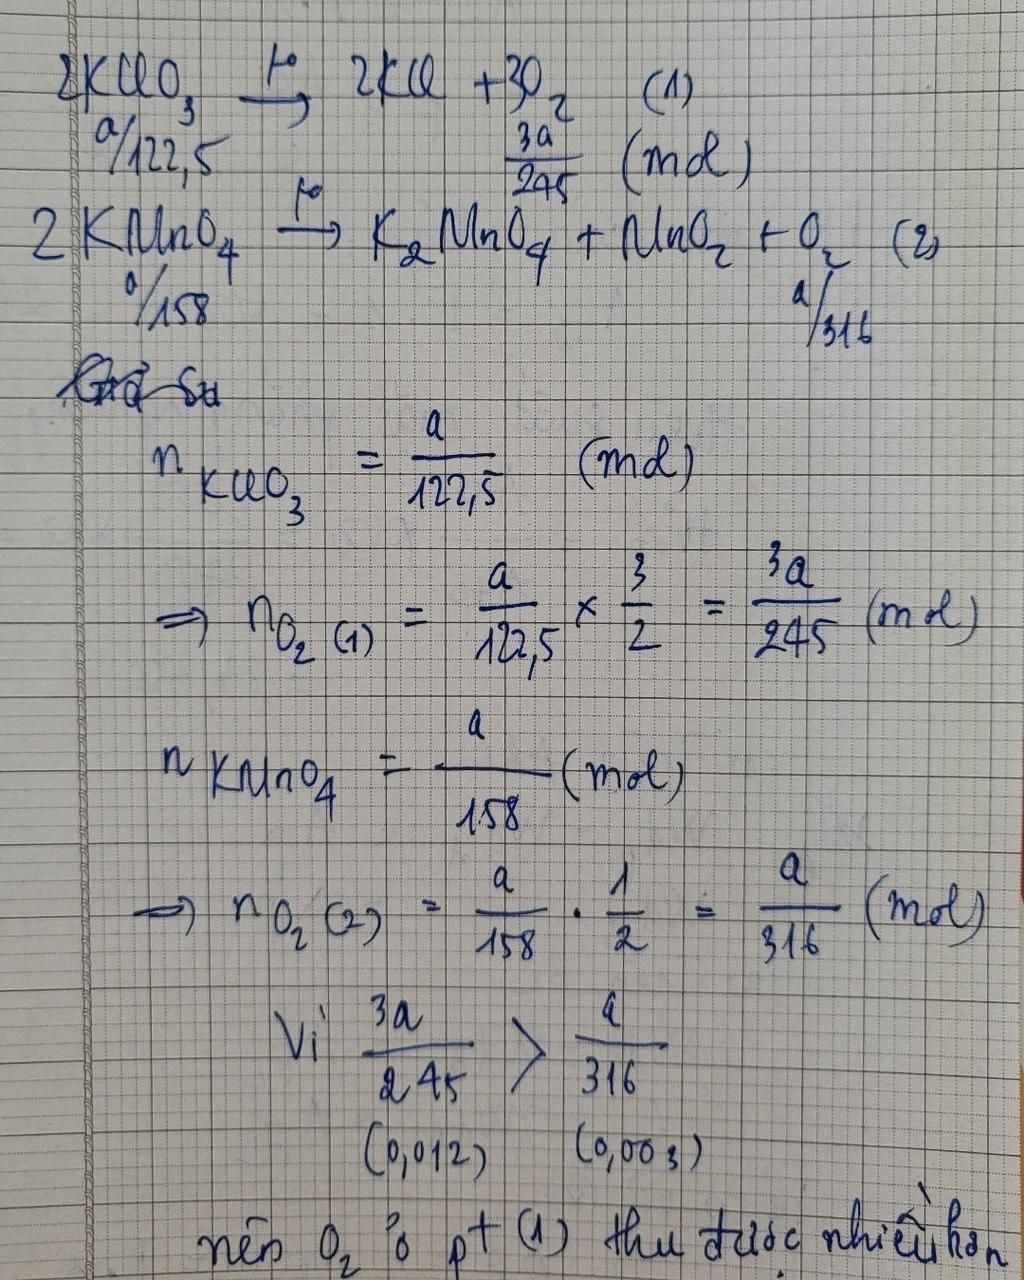 2KClO₃ t° → 2KCl + 3O₂ (1)
a/122,5 3a/245 (mol)
2KMnO₄ t° → K₂MnO₄ + MnO₂ + O₂ (2)
a/158 a/316
n KClO₃ = a/122,5 (mol)
⇒ n O₂ (1) = a/122,5 × 3/2 = 3a/245 (mol)
n KMnO₄ = a/158 (mol)
⇒ n O₂ (2) = a/158 . 1/2 = a/316 (mol)
Vì 3a/245 > a/316
(0,012) (0,003)
nên O₂ ở pt (1) thu được nhiều hơn